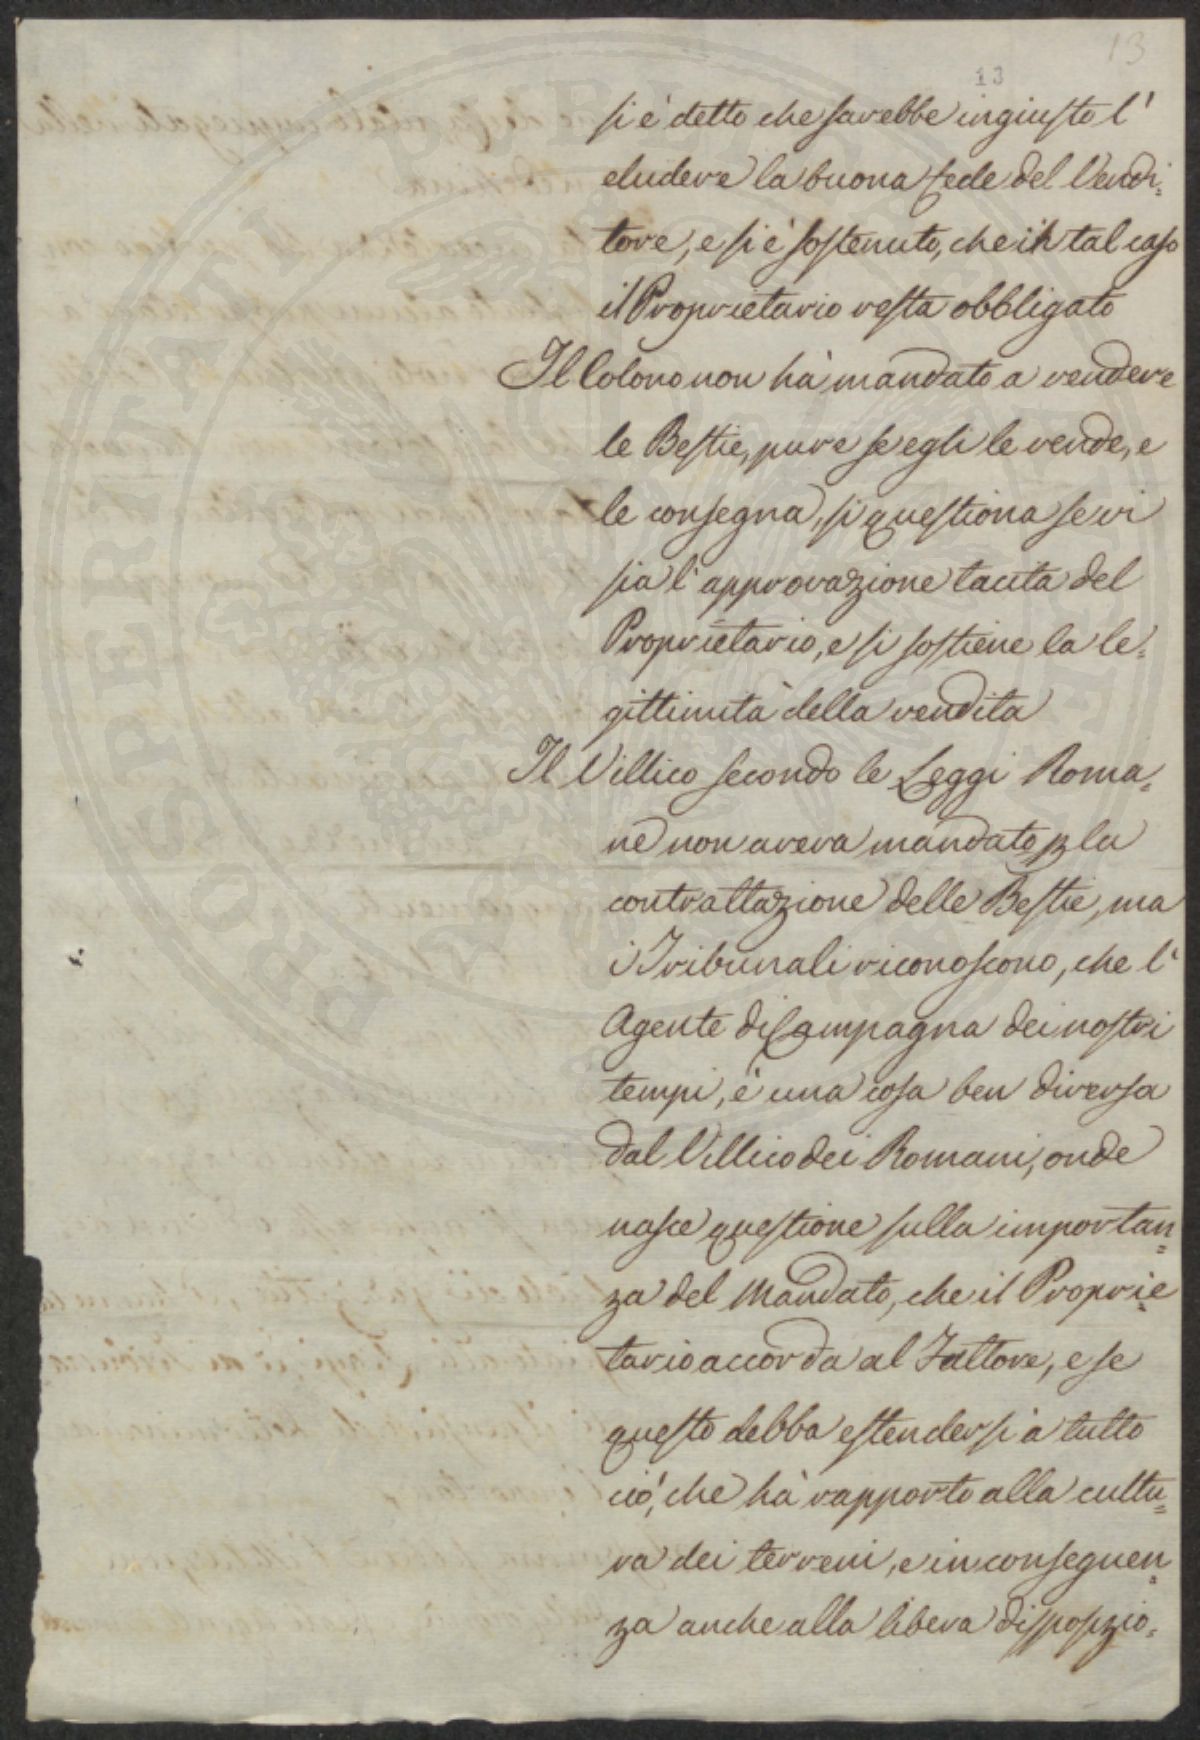 13
13
si è detto che sarebbe ingiusto l'
eludere la buona fede del Vendi=
tore, e si è sostenuto, che in tal caso
il Proprietario resta obbligato
Il Colono non hà mandato a vendere
le Bestie, pure se egli le vende, e
le consegna, si questiona se vi
sia l'approvazione tacita del
Proprietario, e si sostiene la le=
gittimità della vendita
Il Villico secondo le Leggi Roma=
ne non aveva mandato p la
contrattazione delle Bestie, ma
i Tribunali riconoscono, che l'
Agente di Campagna dei nostri
tempi, è una cosa ben diversa
dal Villico dei Romani, onde
nasce questione sulla importan=
za del Mandato, che il Proprie=
tario accorda al Fattore, e se
questo debba estendersi a tutto
ciò, che hà rapporto alla cultu=
ra dei terreni, e in conseguen=
za anche alla libera disposizio=
PROSPERITATI PUBLICAE